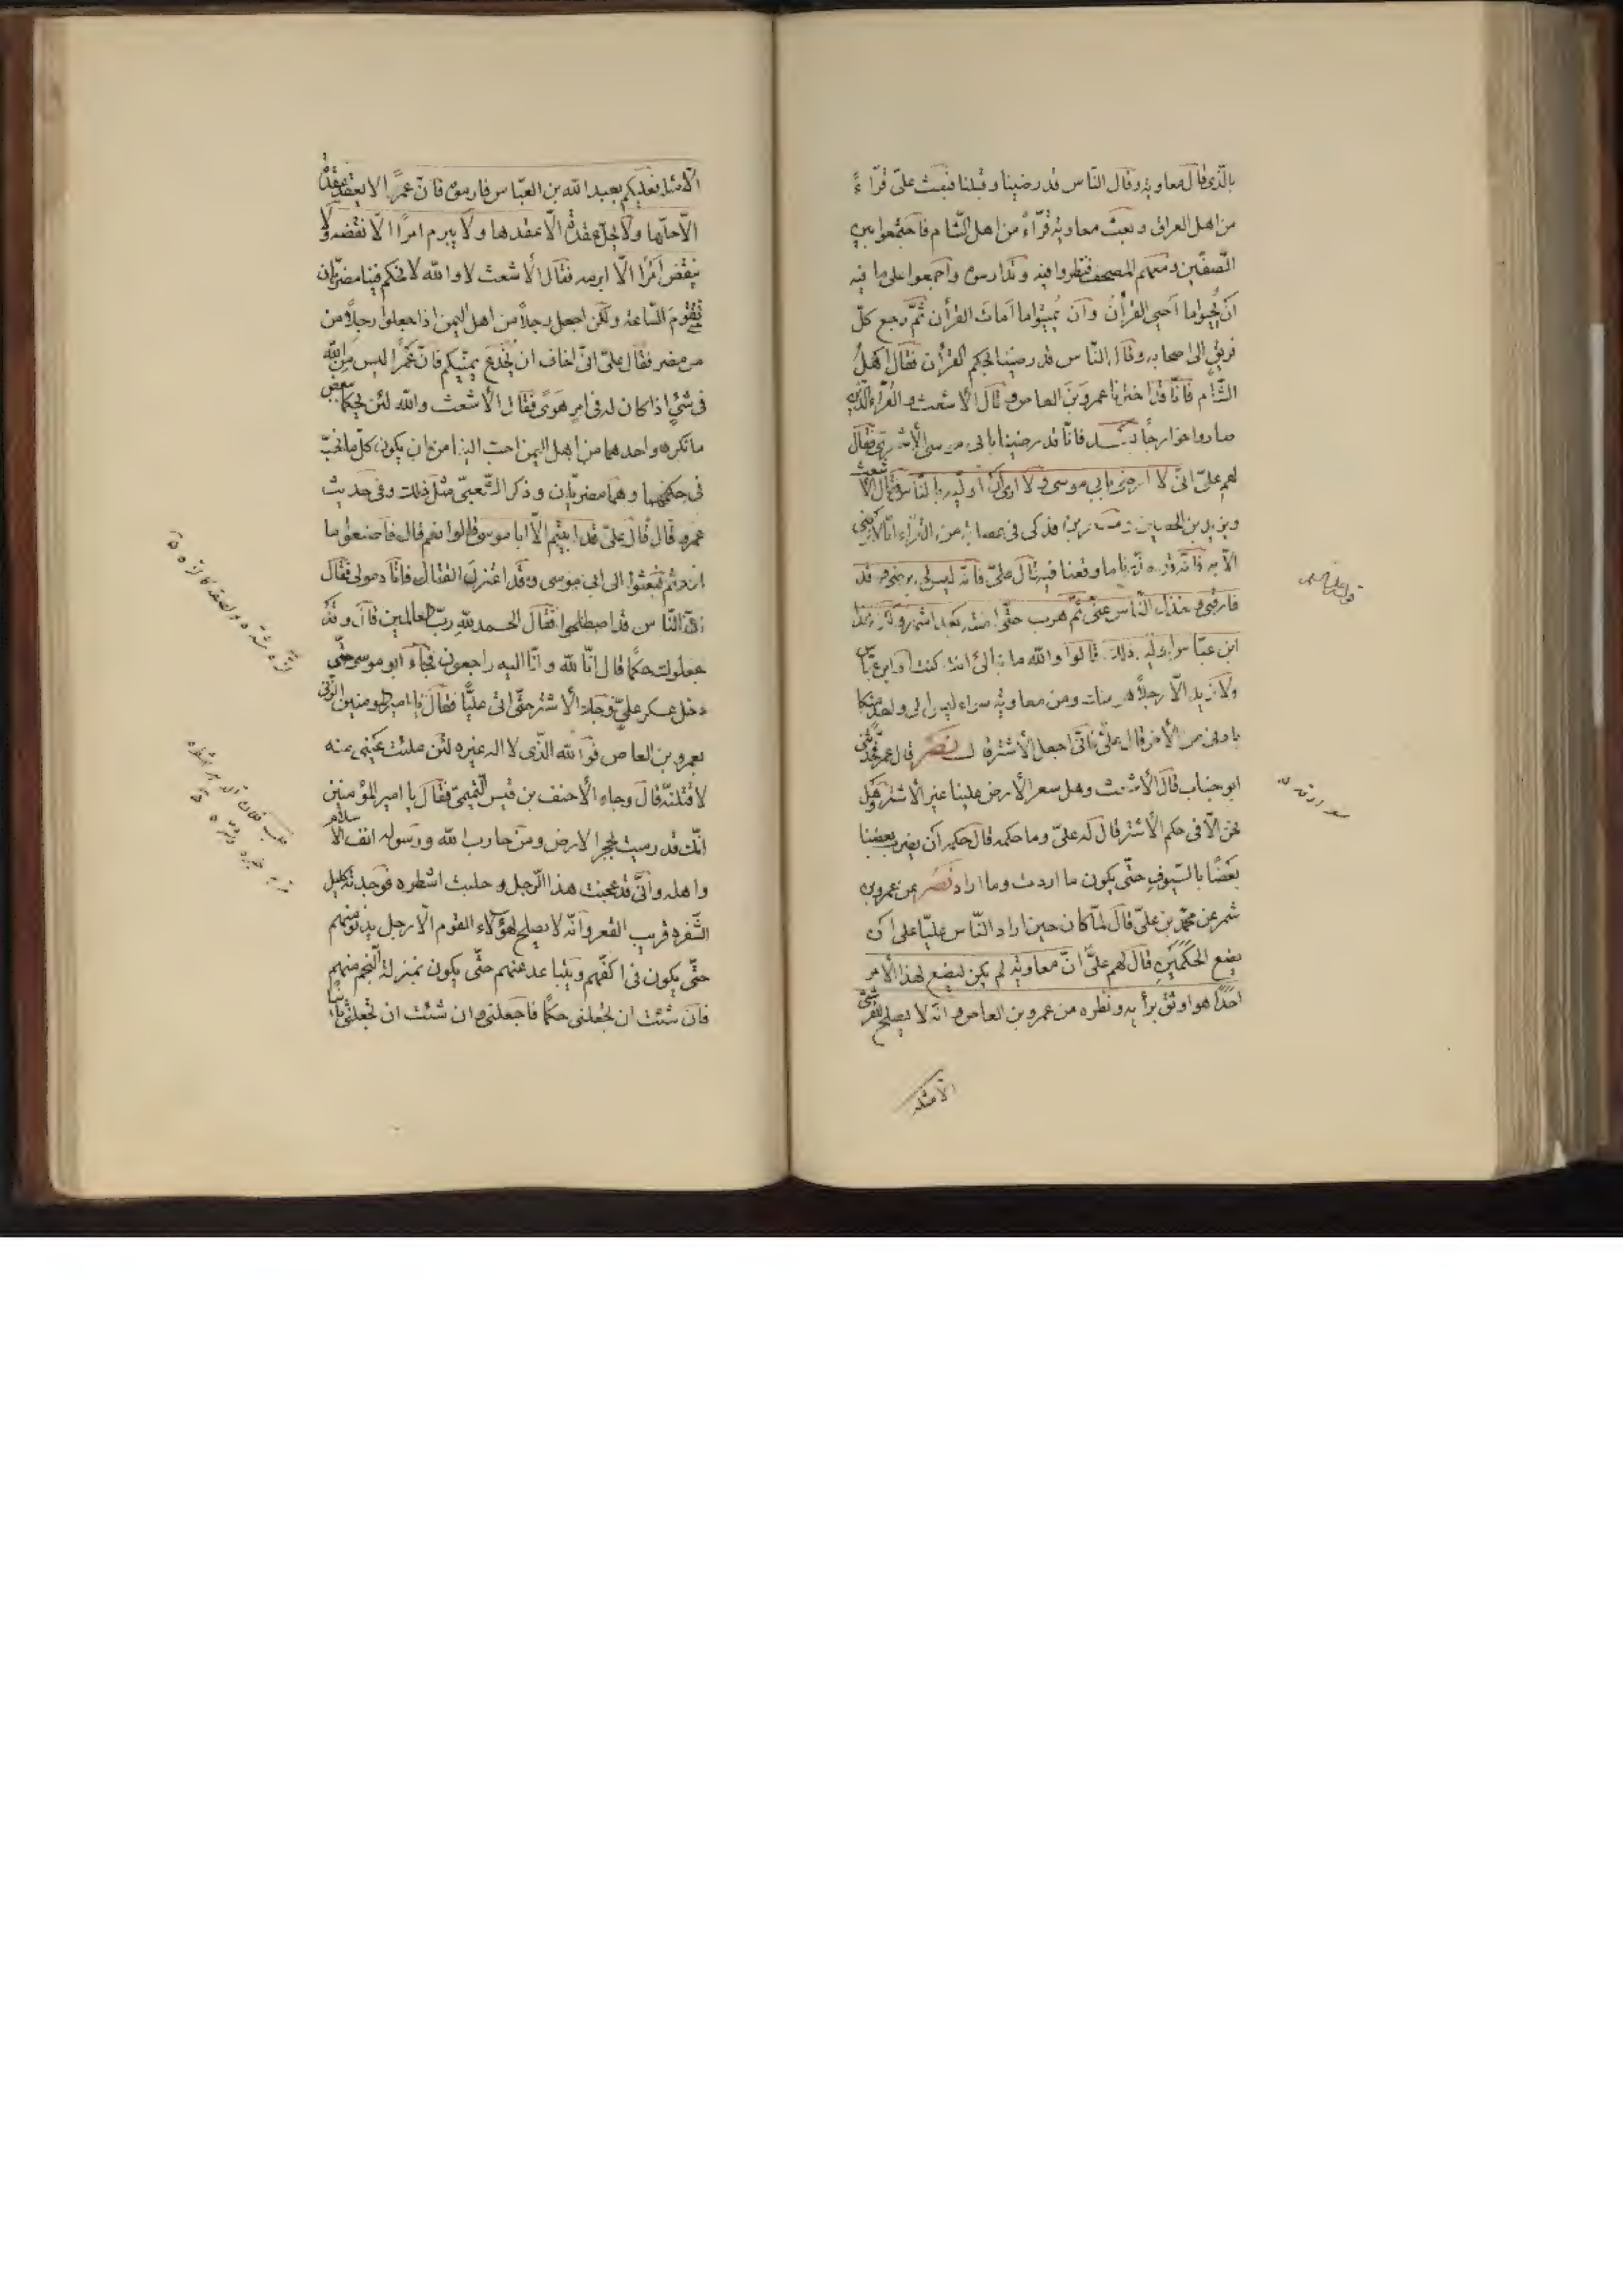 بالّذى قال معاوية وقال النّاس قد رضينا وقبلنا فبعث علىّ قرّاءً
من اهل العراق وبعث معاوية قرّاءً من اهل الشّام فاجتمعوا بين
الصّفّين ومعهم المصحف فنظروا فيه وتدارسوه واجمعوا على ما فيه
ان يحيوا ما احيى القرأن وان يميتوا ما امات القرأن ثمّ رجع كلّ
فريق الى اصحابه وقال النّاس قد رضينا بحكم القرأن فقال اهل
الشّام فانّا قد اخترنا عمرو بن العاص وقال الأشعث والقرّاء الّذين
صاروا خوارجاً بعد فانّا قد رضينا بابى موسى الأشعرى فقال
لهم علىّ انّى لا ارضى بابى موسى ولا ارى ان اولّيه فقال الأشعث
ويزيد بن الحصين فدكى فى عصابة من القرّاء انّا لا نرضى
الّا به فانّه قد حذّرنا ما وقعنا فيه قال علىّ فانّه ليس لى برضى وقد
فارقنى وخذل النّاس عنّى ثمّ هرب حتّى امنته بعد اشهر ولكن هذا
ابن عبّاس اولّيه ذلك قالوا والله ما نبالى انت كنت او ابن عبّاس
ولا نريد الّا رجلاً هو منك ومن معاوية سواء ليس الى واحد منكما
بادنى من الأخر قال علىّ فانّى اجعل الأشتر قال نصر قال عمر فحدّثنى
ابو جناب قال الأشعث وهل سعر الأرض علينا غير الأشتر وهل
نحن الّا فى حكم الأشتر قال له علىّ وما حكمه قال حكمه ان يضرب بعضنا
بعضًا بالسّيوف حتّى يكون ما اردت وما اراد نصر عن عمرو بن
شمر عن محمّد بن علىّ قال لمّا كان حين اراد النّاس عليّا على ان
يضع الحكمين قال لهم علىّ انّ معاوية لم يكن ليضع لهذا الأمر
احدًا هو اوثق برأيه ونظره من عمرو بن العاص وانّه لا يصلح للقرشى
الّا مثله
الّا مثله فعليكم بعبد الله بن العبّاس فارموه فانّ عمرًا لا يعقد عقدة
الّا حلّها ولا يحلّ عقدة الّا عقدها ولا يبرم امرًا الّا نقضه ولا
ينقض امرًا الّا ابرمه فقال الأشعث لا والله لا نحكم فينا مضريّان
تقوم السّاعة ولكن اجعل رجلاً من اهل اليمن اذا جعلوا رجلاً من
من مضر فقال علىّ انّى اخاف ان يُخدع يمنيّكم فانّ عمرًا ليس من الله
فى شئ اذا كان له فى امر هوًى فقال الأشعث والله لئن يحكما ببعض
ما نكره واحدهما من اهل اليمن احبّ الينا من ان يكون كلّ ما نحبّ
فى حكمهما وهما مضريّان وذكر الشّعبىّ مثل ذلك وفى حديث
عمرو قال قال علىّ قد ابيتم الّا ابا موسى قالوا نعم قال فاصنعوا ما
اردتم فبعثوا الى ابى موسى وقد اعتزل القتال فاتاه مولى فقال
انّ النّاس قد اصطلحوا فقال الحمد لله ربّ العالمين قال وقد
جعلوك حكمًا قال انّا لله وانّا اليه راجعون فجاء ابو موسى حتّى
دخل عسكر علىّ وجاء الأشتر حتّى اتى عليًّا فقال يا امير المومنين الزّنى
بعمرو بن العاص فوالله الّذى لا اله غيره لئن ملئت عينى منه
لاقتلنّه قال وجاء الأحنف بن قيس التّميمىّ فقال يا امير المؤمنين
انّك قد رميت بحجر الارض ومن حارب الله ورسوله انف الاسلام
واهله وانّى قد عجنت هذا الرّجل وحلبت اشطره فوجدته كليل
الشّفرة قريب القعر وانّه لا يصلح لهؤلاء القوم الّا رجل يدنو منهم
حتّى يكون فى اكفّهم ويتباعد عنهم حتّى يكون بمنزلة النّجم منهم
فان شئت ان تجعلنى حكمًا فاجعلنى وان شئت ان تجعلنى ثانيًا